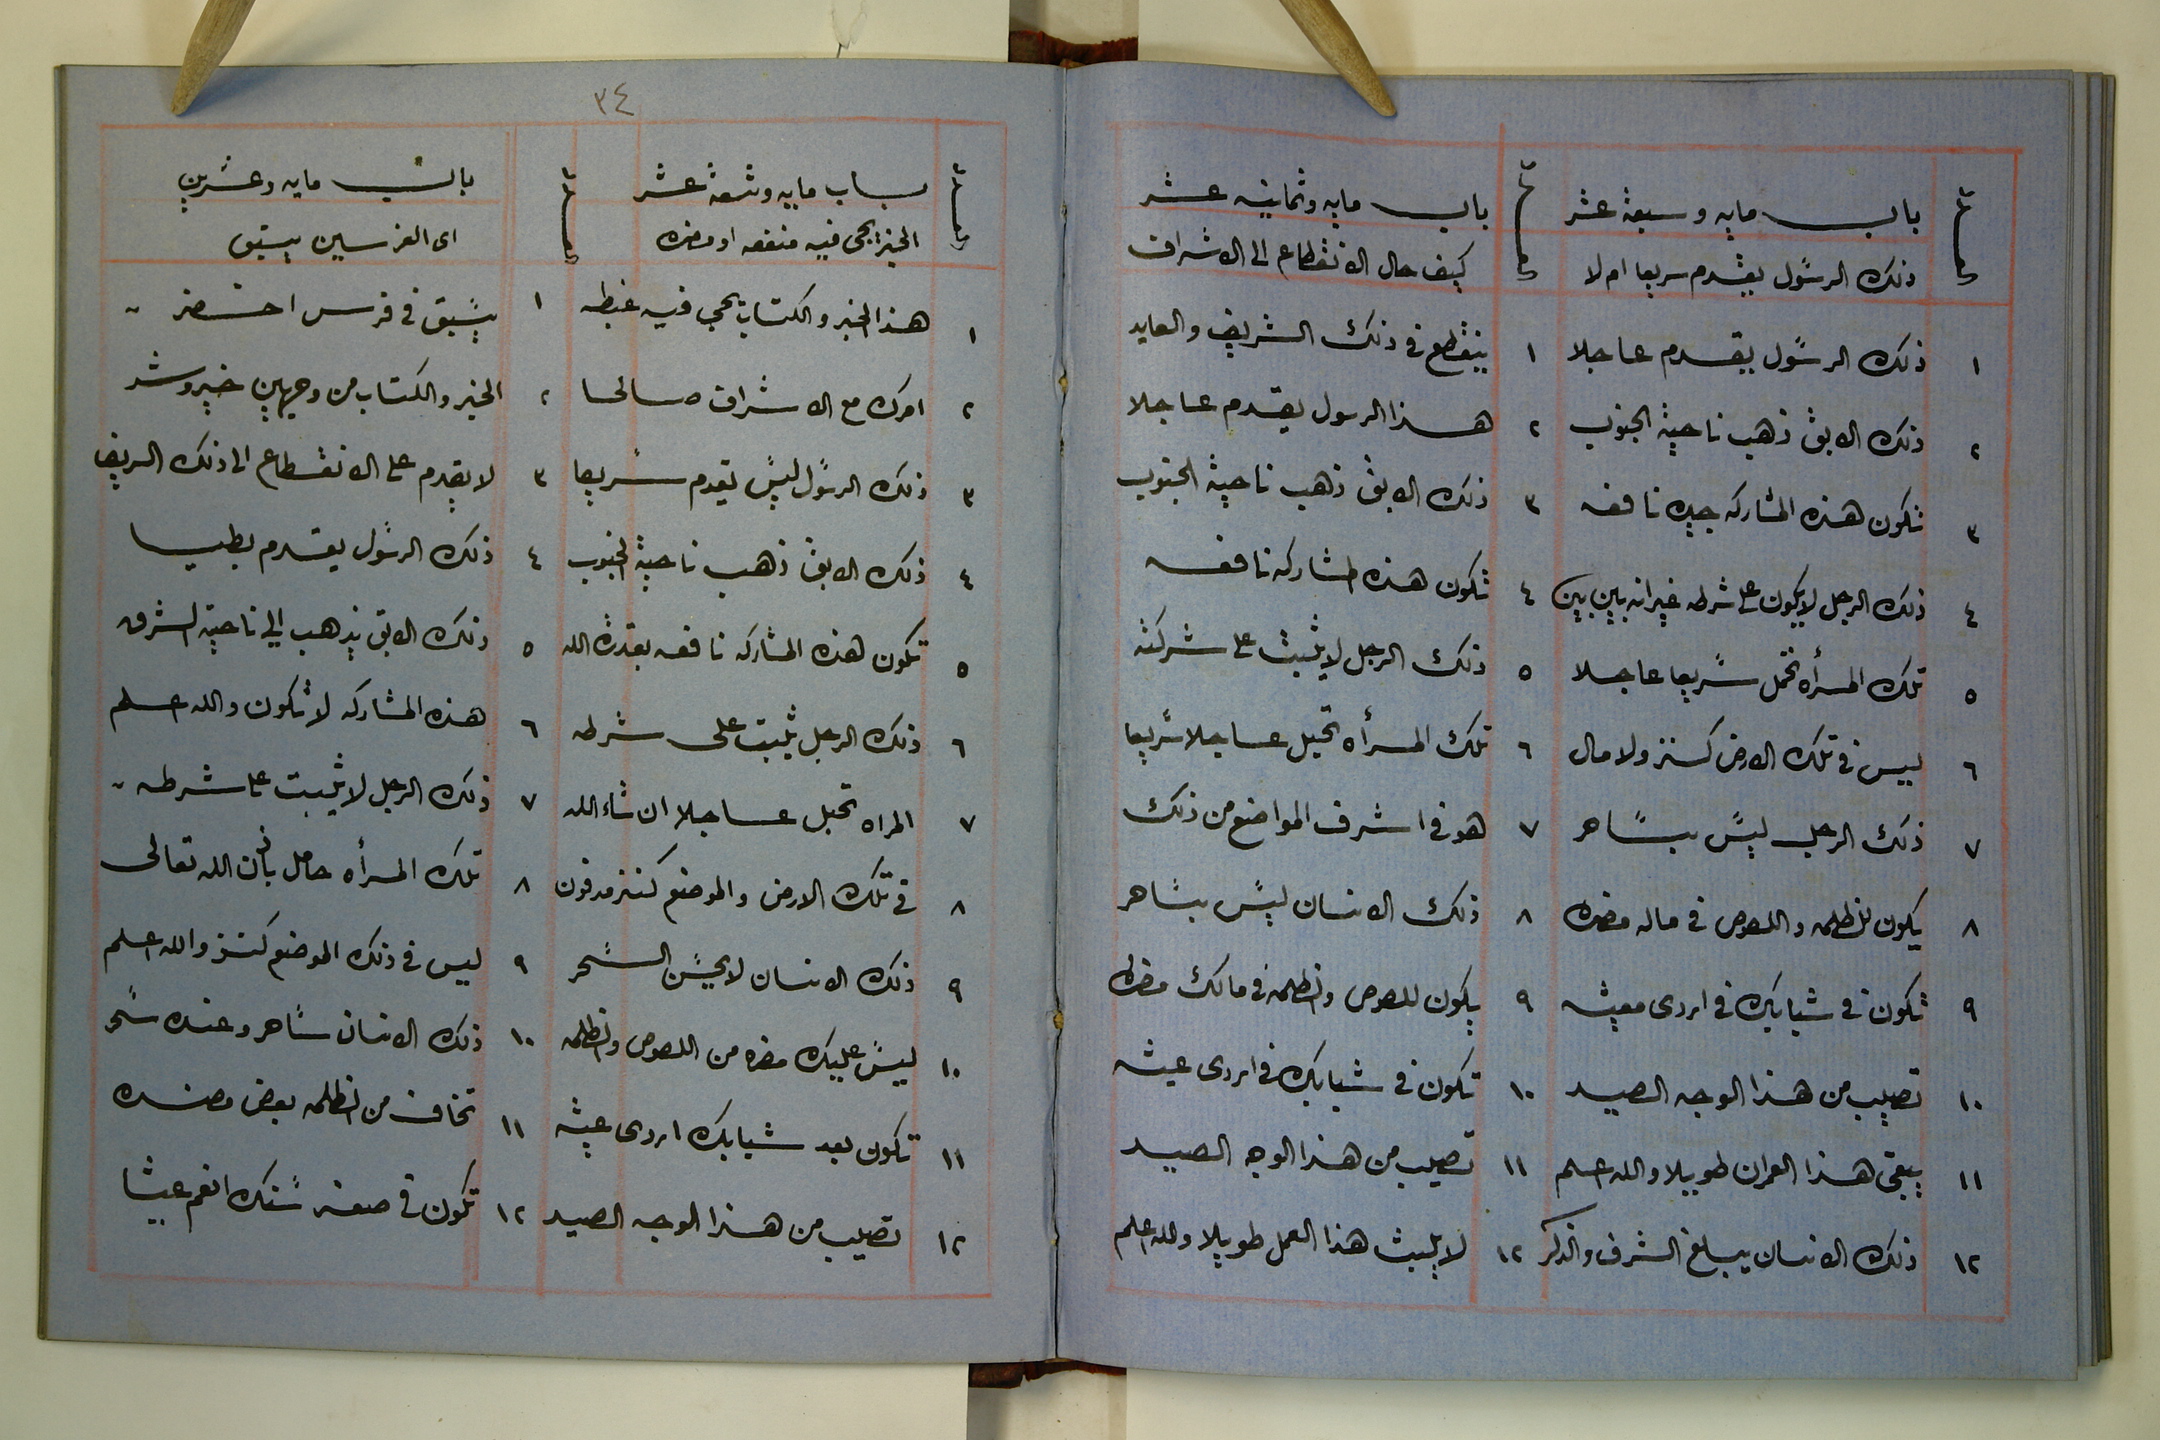 العدد
باب مايه وسبعة عشر
ذلك الرسول يقدم سريعا ام لا
١ ذلك الرسول يقدم عاجلا
٢ ذلك الابق ذهب ناحية الجنوب
٣ تكون هذه المشاركه جيده نافعه
٤ ذلك الرجل لا يكون على شرطه غير انه بين بين
٥ تلك المرأه تحمل سريعا عاجلا
٦ ليس في تلك الارض كنز ولا مال
٧ ذلك الرجل ليس بساحر
٨ يكون للظلمه واللصوص في ماله مضره
٩ تكون في شبابك في اردى معيشه
١٠ تصيب من هذا الوجه الصيد
١١ يبقى هذا العمران طويلا والله اعلم
١٢ ذلك الانسان يبلغ الشرف والذكر
العدد
باب مايه وثمانيه عشر
كيف حال الانقطاع الى الاشراف
١ ينقطع في ذلك الشريف والعايد
٢ هذا الرسول يقدم عاجلا
٣ ذلك الابق ذهب ناحية الجنوب
٤ تكون هذه المشاركه نافعه
٥ ذلك الرجل لا يثبت على شركته
٦ تلك المرأه تحبل عاجلا سريعا
٧ هو في اشرف المواضع من ذلك
٨ ذلك الانسان ليس بساحر
٩ يكون للصوص والظلمه في مالك مضره
١٠ تكون في شبابك في اردى عيشه
١١ تصيب من هذا الوجه الصيد
١٢ لا يلبث هذا العمل طويلا والله اعلم
٣٤
العدد
باب مايه وتسعة عشر
الخبز يجى فيه منفعه او مضره
١ هذا الخبر والكتاب يجي فيه غبطه
٢ امرك مع الاشراف صالحا
٣ ذلك الرسول ليس يقدم سريعا
٤ ذلك الابق ذهب ناحية الجنوب
٥ تكون هذه المشاركه نافعه بقدرة الله
٦ ذلك الرجل يثبت على شرطه
٧ المراه تحبل عاجلا ان شاء الله
٨ في تلك الارض والموضع كنز مدفون
٩ ذلك الانسان لا يحسن السحر
١٠ ليس عليك مضره من اللصوص والظلمه
١١ تكون بعد شبابك اردى عيشه
١٢ تصيب من هذا الوجه الصيد
العدد
باب مايه وعشرين
اى الفرسين يستبق
١ يسبق في فرس اخضر
٢ الخبر والكتاب من وجهين خير وشر
٣ لا يقدم على الانقطاع الى ذلك الريف
٤ ذلك الرسول يقدم بطيا
٥ ذلك الابق يذهب الي ناحية الشرق
٦ هذه المشاركه لا تكون والله اعلم
٧ ذلك الرجل لا يثبت على شرطه
٨ تلك المرأه حامل باذن الله تعالى
٩ ليس في ذلك الموضع كنز والله اعلم
١٠ ذلك الانسان ساحر وعنده سحر
١١ تخاف من الظلمه بعض مضره
١٢ تكون في صغر سنك انعم عيشا